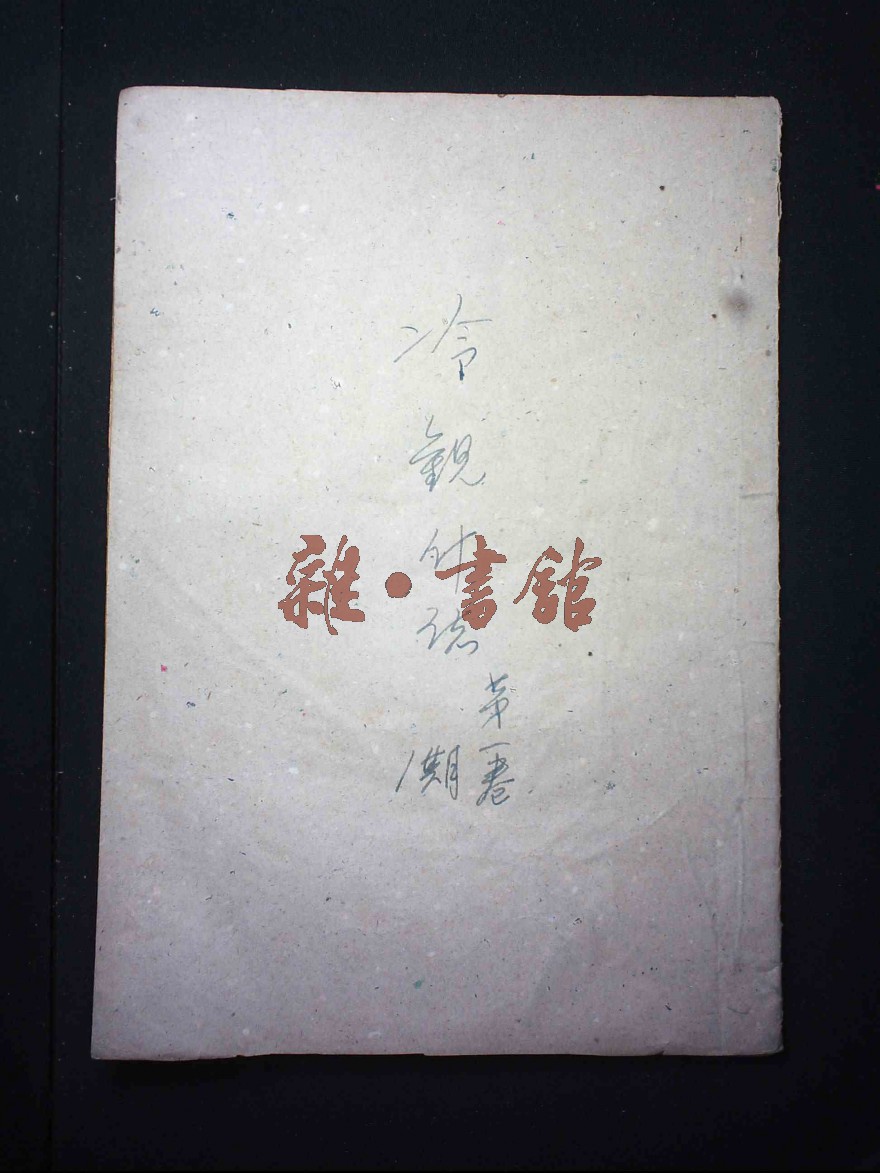 冷觀什誌
第一卷
1期
雜•書館